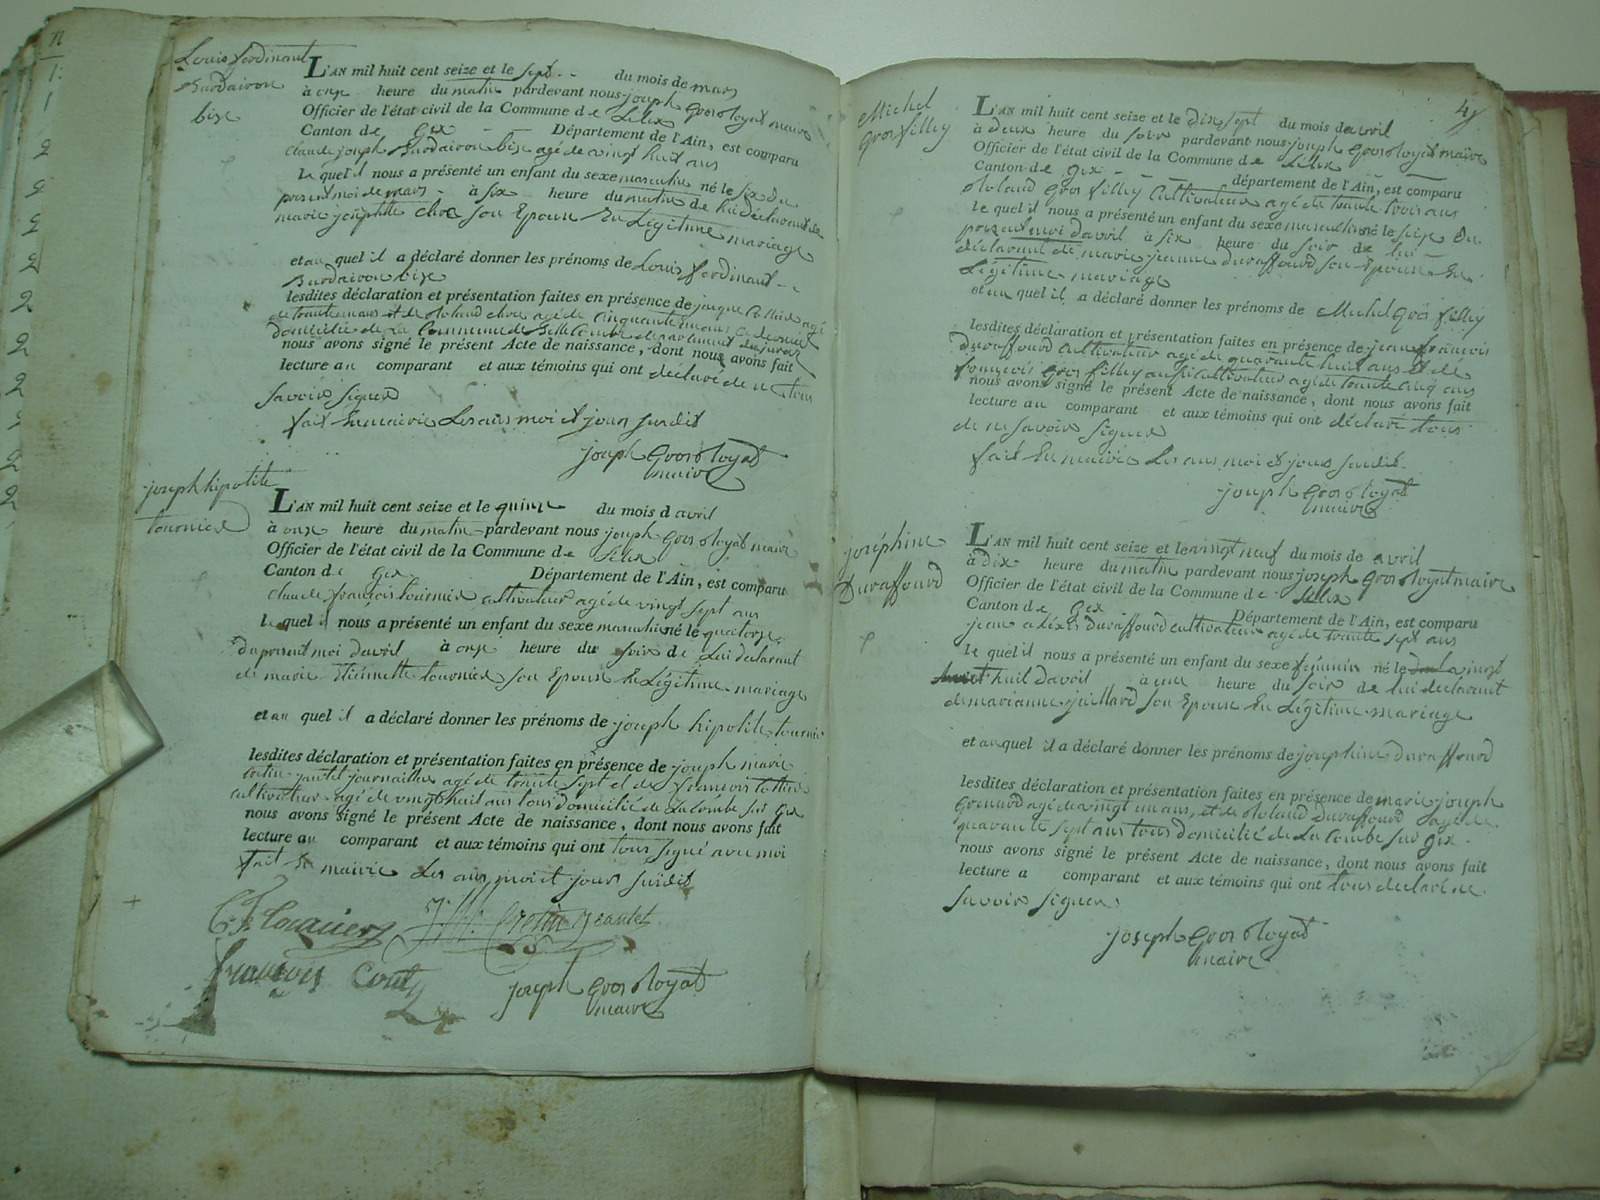 Louis ferdinant
Burdairon
bise
L'AN mil huit cent seize et le sept du mois de mars
à onze heure du matin pardevant nous joseph Gros Royat maire
Officier de l'état civil de la Commune de Lelex
Canton de Gex Département de l'Ain, est comparu
claude joseph Burdairon bise agé de vingt huit ans
le quel il nous a présenté un enfant du sexe masculin né le six du
present moi de mars à six heure du matin de lui déclarant de
marie josephtte chos son Epouse En Légitime mariage
et au quel il a déclaré donner les prénoms de Louis ferdinant
Burdairon bise
lesdites déclaration et présentation faites en présence de jacque agé
de trante ans et de Roland agé de cinquante ans
domicilié de La Commune de Belle Combe departement du jura
nous avons signé le présent Acte de naissance, dont nous avons fait
lecture au comparant et aux témoins qui ont déclaré de ne tous
savoir signer
fait En mairie Les ans moi et jour susdit
joseph Gros Royat
maire
joseph hipolite
tournier
L'AN mil huit cent seize et le quinze du mois d avril
à onze heure du matin pardevant nous joseph Gros Royat maire
Officier de l'état civil de la Commune de Lelex
Canton de Gex Département de l'Ain, est comparu
claude françois tournier cultivateur agé de vingt sept ans
le quel il nous a présenté un enfant du sexe masculin né le quatorze
du present moi davril à onze heure du soir de Lui déclarant
de marie Etiennette tournier son Epouse En Légitime mariage
et au quel il a déclaré donner les prénoms de joseph hipolite tournier
lesdites déclaration et présentation faites en présence de joseph marie
journaillier agé de trante sept et de françois
cultivateur agé de vingt huit ans tous domicilié de La Combe sur Gex
nous avons signé le présent Acte de naissance, dont nous avons fait
lecture au comparant et aux témoins qui ont tous signé avec moi
fait En mairie Les ans moi et jour susdit
C. F. tournier J. M. jeantet
françois
joseph Gros Royat
maire
Michel
Gros filley
L'AN mil huit cent seize et le dix sept du mois davril
à deux heure du soir pardevant nous joseph Gros Royat maire
Officier de l'état civil de la Commune de Lelex
Canton de Gex département de l'Ain, est comparu
Roland Gros filley Cultivateur agé de trante trois ans
le quel il nous a présenté un enfant du sexe masculin né le seize du
present moi davril à six heure du soir de lui
déclarant de marie jeanne Duraffourd son Epouse En
Légitime mariage
et au quel il a déclaré donner les prénoms de Michel Gros filley
lesdites déclaration et présentation faites en présence de jean françois
Duraffourd cultivateur agé de quarante huit ans et de
françois Gros filley aussi cultivateur agé de trante cinq ans
nous avons signé le présent Acte de naissance, dont nous avons fait
lecture au comparant et aux témoins qui ont déclaré tous
de ne savoir signer
fait En mairie Les ans moi et jour susdit
joseph Gros Royat
maire
joséphine
Duraffourd
L'AN mil huit cent seize et le vingt neuf du mois de avril
à dix heure du matin pardevant nous joseph Gros Royat maire
Officier de l'état civil de la Commune de Lelex
Canton de Gex Département de l'Ain, est comparu
jean aléxis Duraffourd cultivateur agé de trante sept ans
le quel il nous a présenté un enfant du sexe féminin né le vingt
huit davril à une heure du soir de lui declarant
de marianne juillard son Epouse En Légitime mariage
et au quel il a déclaré donner les prénoms de joséphine Duraffourd
lesdites déclaration et présentation faites en présence de marie joseph
agé de vingt un ans, et de Roland Duraffourd agé de
quarante sept ans tous domicilié de La Combe sur Gex
nous avons signé le présent Acte de naissance, dont nous avons fait
lecture a comparant et aux témoins qui ont tous declaré ne
savoir signer
joseph Gros Royat
maire